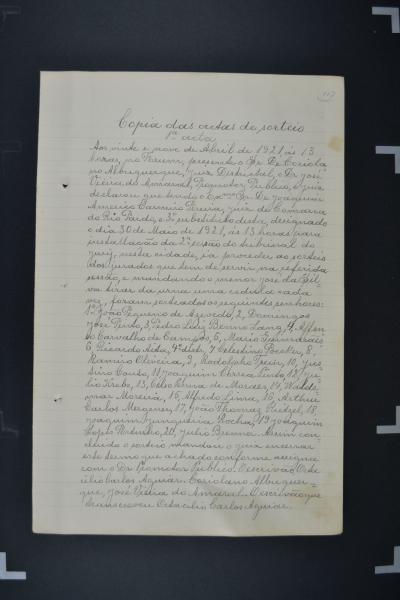 117
Copia das actas do sorteio
1ª acta
Aos vinte e nove de Abril de 1921, ás 13
horas, no Forum, presente o Dr. Coriola
no Albuquerque, Juiz Districtal, e Dr José
Vieira do Amaral, Promotor Publico, o Juiz
declarou que tendo o Exmo Dr. Joaquim
Americo Carneiro Pereira, Juiz de Comarca
do Rio Pardo, e 3º substituto desta, designado
o dia 30 de Maio de 1921, ás 13 horas para
installação da 2ª sessão do tribunal do
jury, nesta cidade, ia proceder ao sorteio
dos jurados que tem de servir na referida
sessão, e mandando o menor José da Sil
va tirar da urna uma cedula cada
vez, foram sorteados os seguintes senhores:
1º João Pequeno de Azevedo, 2, Domingos
José Pinto, 3, Pedro Luiz Benno Lang, 4,
so Carvalho de Campos, 5, Mario
6 Ricardo 7 Celestino 8,
Ramiro Oliveira, 9, Rodolpho 10, Jus
tino Couto, 11 Joaquim Corrêa Pinto, 12, Ju
lio 13, Celso de Moraes, 14, Walde
mar Moreira, 15, Alfredo Lima, 16, Arthur
Carlos 17, João Thomaz 18,
Joaquim Junqueira Rocha, 19 Joaquim
20, Julio Assim con
cluido o sorteio mandou o juiz encerrar
este termo que achado conforme assigna
com o Dr. Promotor Publico. O escrivão Octa
cilio Carlos Aguiar. Coriolano Albuquer-
que, José Vieira do Amaral. O escrivão que
transcreveu Octacilio Carlos Aguiar.